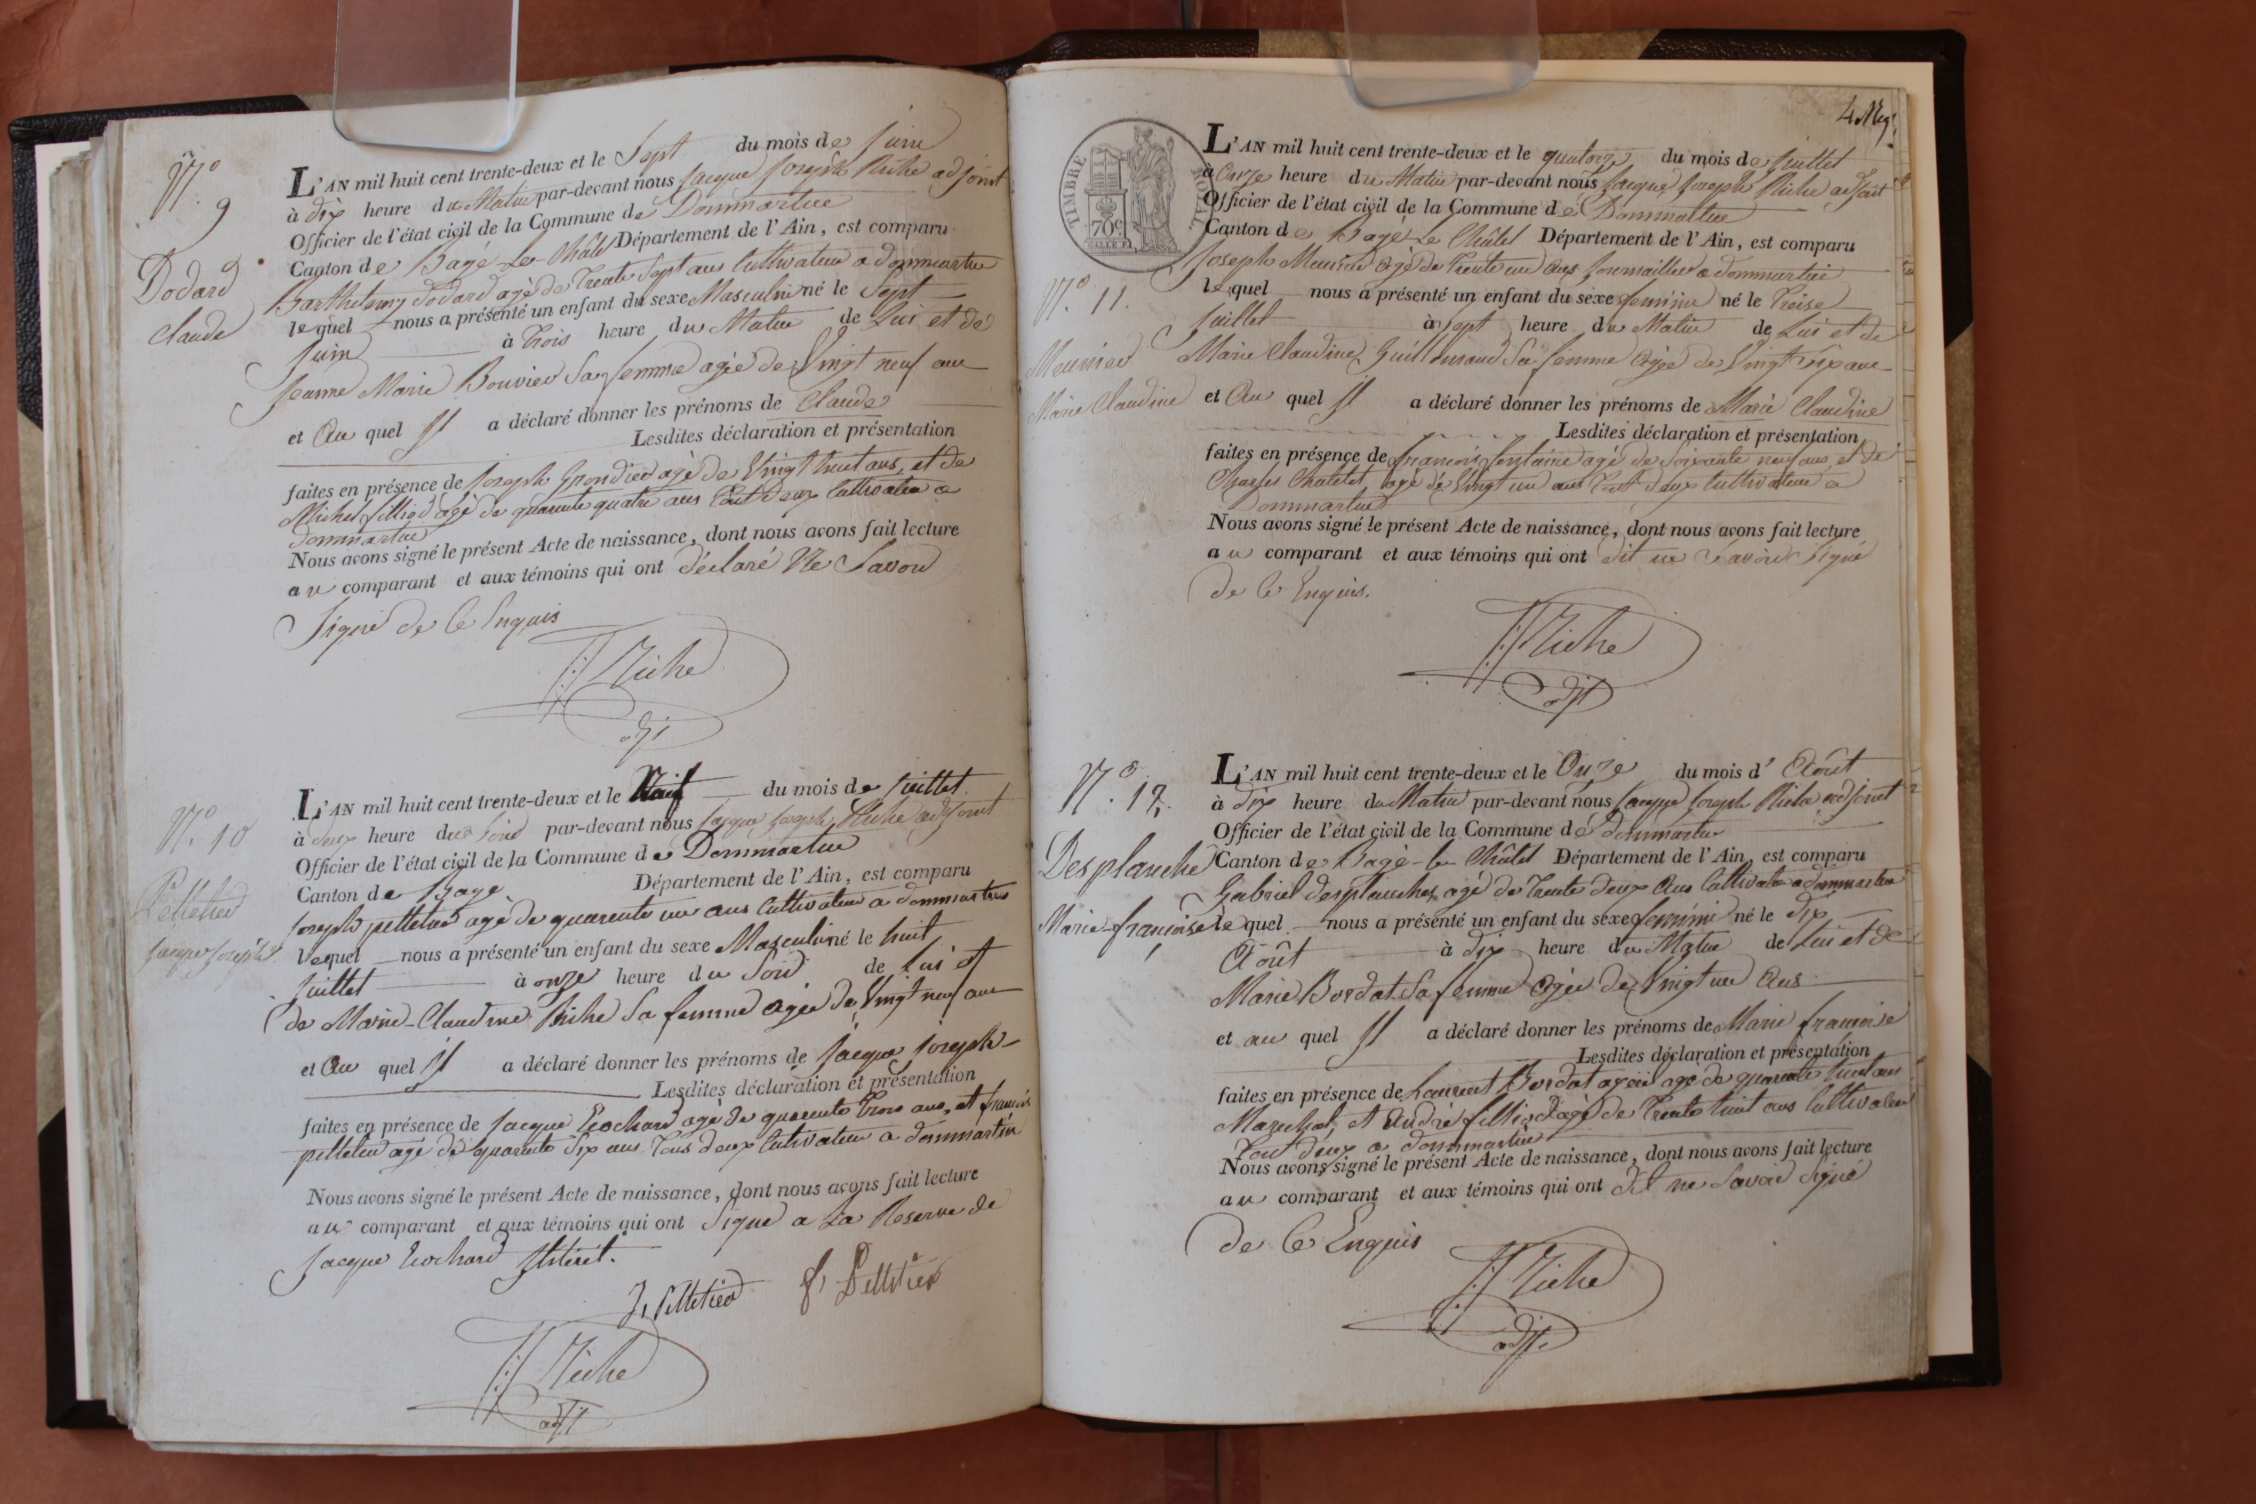 N.º 9
Dodard
Claude
L'AN mil huit cent trente-deux et le Sept du mois de Juin
à dix heure du Matin par-devant nous Jacque Joseph Riche adjoint
Officier de l'état civil de la Commune de Dommartin
Canton de Bagé Le Châtel Département de l'Ain, est comparu
Barthelemy Dodard agé de Trente Sept ans Cultivateur a dommartin
lequel nous a présenté un enfant du sexe Masculin né le Sept
Juin à Trois heure du Matin de Lui et de
Jeanne Marie Bouvier Sa femme agée de Vingt neuf ans
et Au quel Il a déclaré donner les prénoms de Claude
Lesdites déclaration et présentation
faites en présence de Joseph Grondier agé de Vingt huit ans, et de
Michel fillion agé de quarante quatre ans Tout deux Cultivateur a
dommartin
Nous avons signé le présent Acte de naissance, dont nous avons fait lecture
au comparant et aux témoins qui ont déclaré Ne Savoir
Signé de Ce Enquis
JJ Riche
adjt
N.º 10
Pelletier
Jacque Joseph
L'AN mil huit cent trente-deux et le Neuf du mois de Juillet
à deux heure du Soir par-devant nous Jacque Joseph Riche adjoint
Officier de l'état civil de la Commune de Dommartin
Canton de Bagé Département de l'Ain, est comparu
Joseph pelletier agé de quarante un ans Cultivateur a dommartin
lequel nous a présenté un enfant du sexe Masculin né le huit
Juillet à onze heure du Soir de Lui et
de Marie-Claudine Riche Sa femme agée de Vingt neuf ans
et Au quel Il a déclaré donner les prénoms de Jacque Joseph
Lesdites déclaration et présentation
faites en présence de Jacque Rochard agé de quarente Trois ans, et francois
pelletier agé de quarente Six ans Tous deux Cultivateur a dommartin
Nous avons signé le présent Acte de naissance, dont nous avons fait lecture
au comparant et aux témoins qui ont Signé a La Reserve de
Jacque Rochard
J, Pelletier f, Pelletier
JJ Riche
adjt
4
TIMBRE ROYAL
70c
N.º 11.
Meunier
Marie Claudine
L'AN mil huit cent trente-deux et le quatorze du mois de Juillet
à Onze heure du Matin par-devant nous Jacque Joseph Riche adjoint
Officier de l'état civil de la Commune de Dommartin
Canton de Bagé Le Châtel Département de l'Ain, est comparu
Joseph Meunier agé de Trente un ans Journaillier a dommartin
lequel nous a présenté un enfant du sexe feminin né le Treise
Juillet à Sept heure du Matin de Lui et de
Marie Claudine Sa femme agée de Vingt six ans
et Au quel Il a déclaré donner les prénoms de Marie Claudine
Lesdites déclaration et présentation
faites en présence de francois fontaine agé de Soixante neuf ans et de
Charles Chatelet agé de Vingt un ans Tout deux Cultivateur a
Dommartin
Nous avons signé le présent Acte de naissance, dont nous avons fait lecture
au comparant et aux témoins qui ont dit ne Savoir Signé
de Ce Enquis.
JJ Riche
adjt
N.º 12.
Desplanche
Marie-françoise
L'AN mil huit cent trente-deux et le Onze du mois d' Août
à dix heure du Matin par-devant nous Jacque Joseph Riche adjoint
Officier de l'état civil de la Commune de Dommartin
Canton de Bagé-le Châtel Département de l'Ain, est comparu
Gabriel desplanches, agé de Trente deux Ans Cultivateur a dommartin
lequel nous a présenté un enfant du sexe feminin né le dix
Août à dix heure du Matin de Lui et de
Marie Bordat Sa femme agée de Vingt un Ans
et au quel Il a déclaré donner les prénoms de Marie françoise
Lesdites déclaration et présentation
faites en présence de Laurent Bordat agé de quarente huit ans
Marechal, et André fillion agé de Trente huit ans Cultivateur
Tout deux a dommartin
Nous avons signé le présent Acte de naissance, dont nous avons fait lecture
au comparant et aux témoins qui ont dit ne Savoir Signé
de Ce Enquis
JJ Riche
adjt.